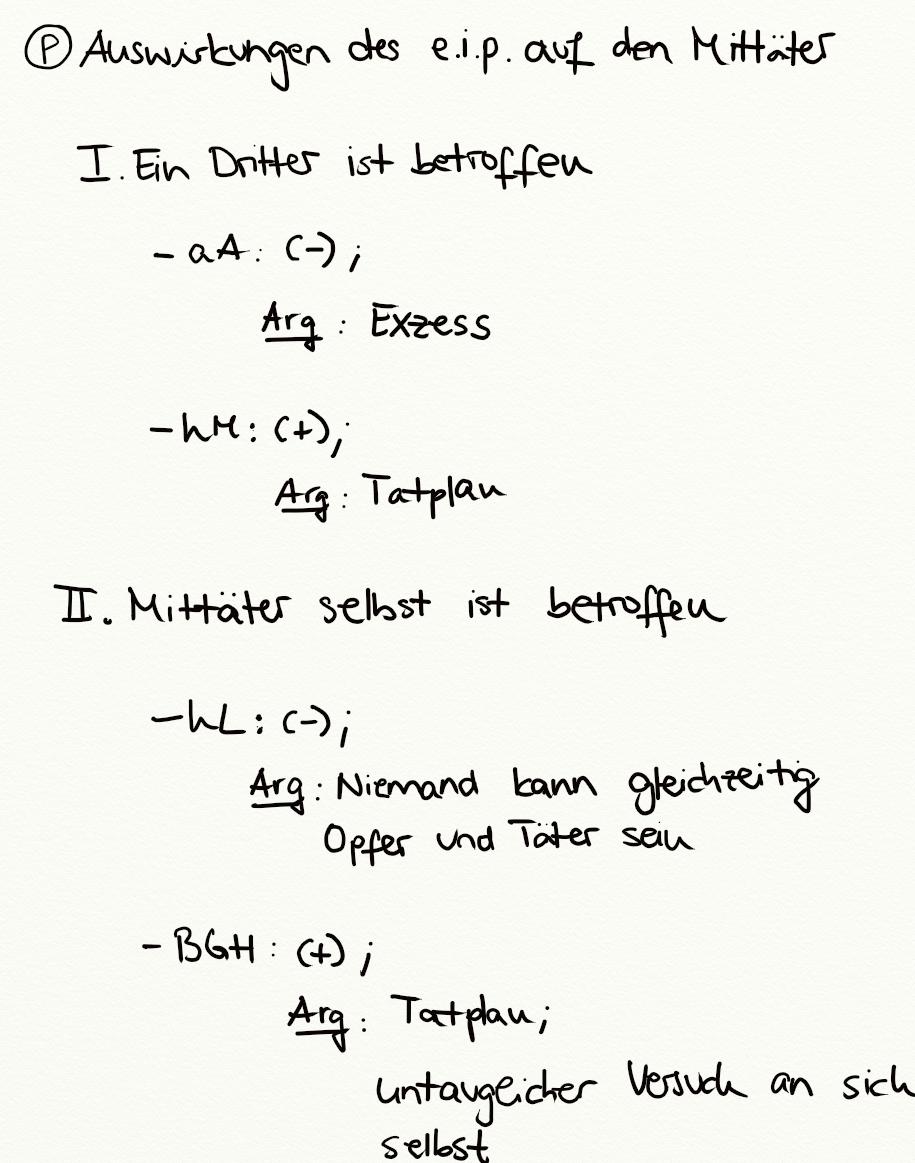 Ⓟ Auswirkungen des e.i.p. auf den Mittäter
I. Ein Dritter ist betroffen
- aA: (-);
Arg: Exzess
- hM: (+);
Arg: Tatplan
II. Mittäter selbst ist betroffen
- hL: (-);
Arg: Niemand kann gleichzeitig
Opfer und Täter sein
- BGH: (+);
Arg: Tatplan;
untauglicher Versuch an sich
selbst